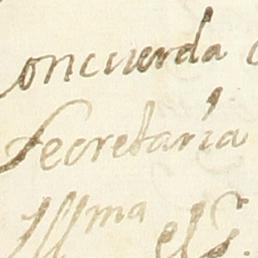 concuerda
secretaría
Yllma el S.